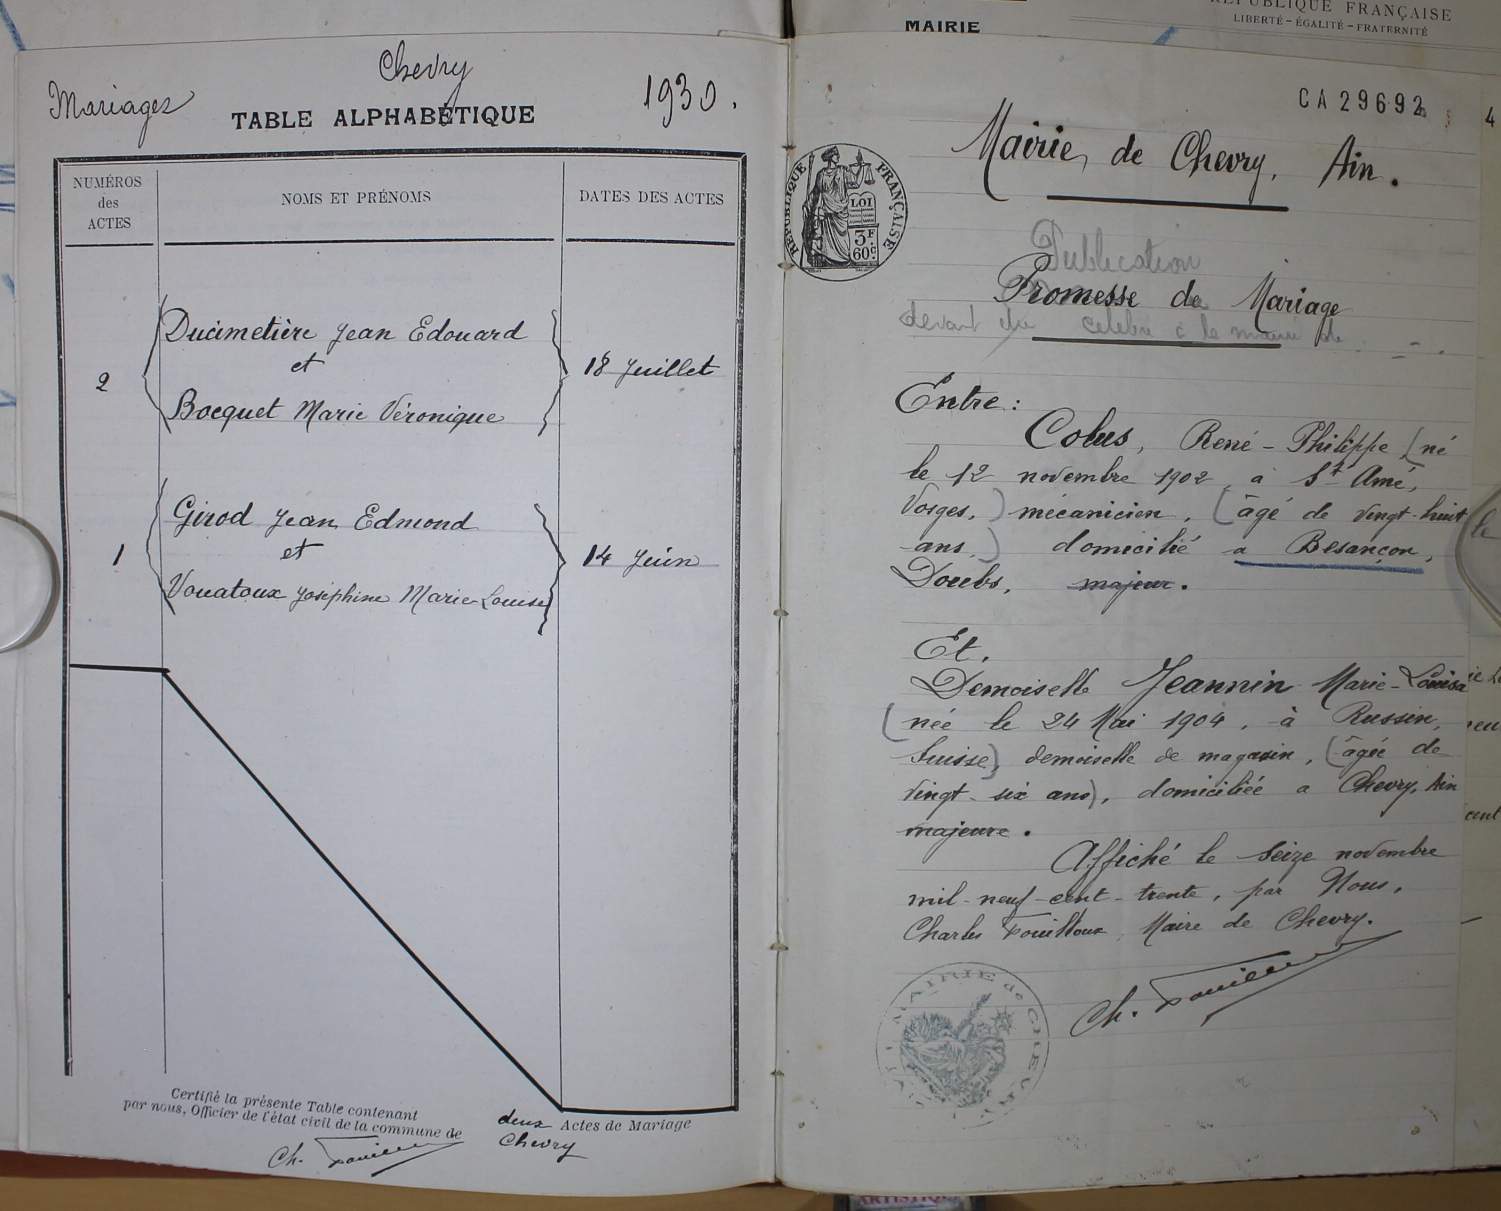 Mariages
Chevry
1930.
TABLE ALPHABÉTIQUE
NUMÉROS
des
ACTES
NOMS ET PRÉNOMS
DATES DES ACTES
2
Ducimetière Jean Edouard
et
Bocquet Marie Véronique
18 Juillet
1
Girod Jean Edmond
et
Vouatoux Joséphine Marie-Louise
14 Juin
Certifié la présente Table contenant deux Actes de Mariage
par nous, Officier de l'état civil de la commune de Chevry
MAIRIE
RÉPUBLIQUE FRANÇAISE
LIBERTÉ – ÉGALITÉ – FRATERNITÉ
CA 29692
4
RÉPUBLIQUE FRANÇAISE
LOI
3F
60c
Mairie de Chevry, Ain.
Publication
Promesse de Mariage
devant être célébré à la mairie de
Entre :
Colus, René-Philippe (né
le 12 novembre 1902 à St Amé,
Vosges,) mécanicien, (âgé de vingt-huit
ans,) domicilié a Besançon,
Doubs, majeur.
Et,
Demoiselle Jeannin Marie-Louisa
(née le 24 Mai 1904, à Russin,
Suisse) demoiselle de magasin, (âgée de
vingt-six ans), domiciliée a Chevry, Ain
majeure.
Affiché le seize novembre
mil-neuf-cent-trente, par Nous,
Charles Fouilloux, Maire de Chevry.
MAIRIE de CHEVRY
ARTISTIQUE